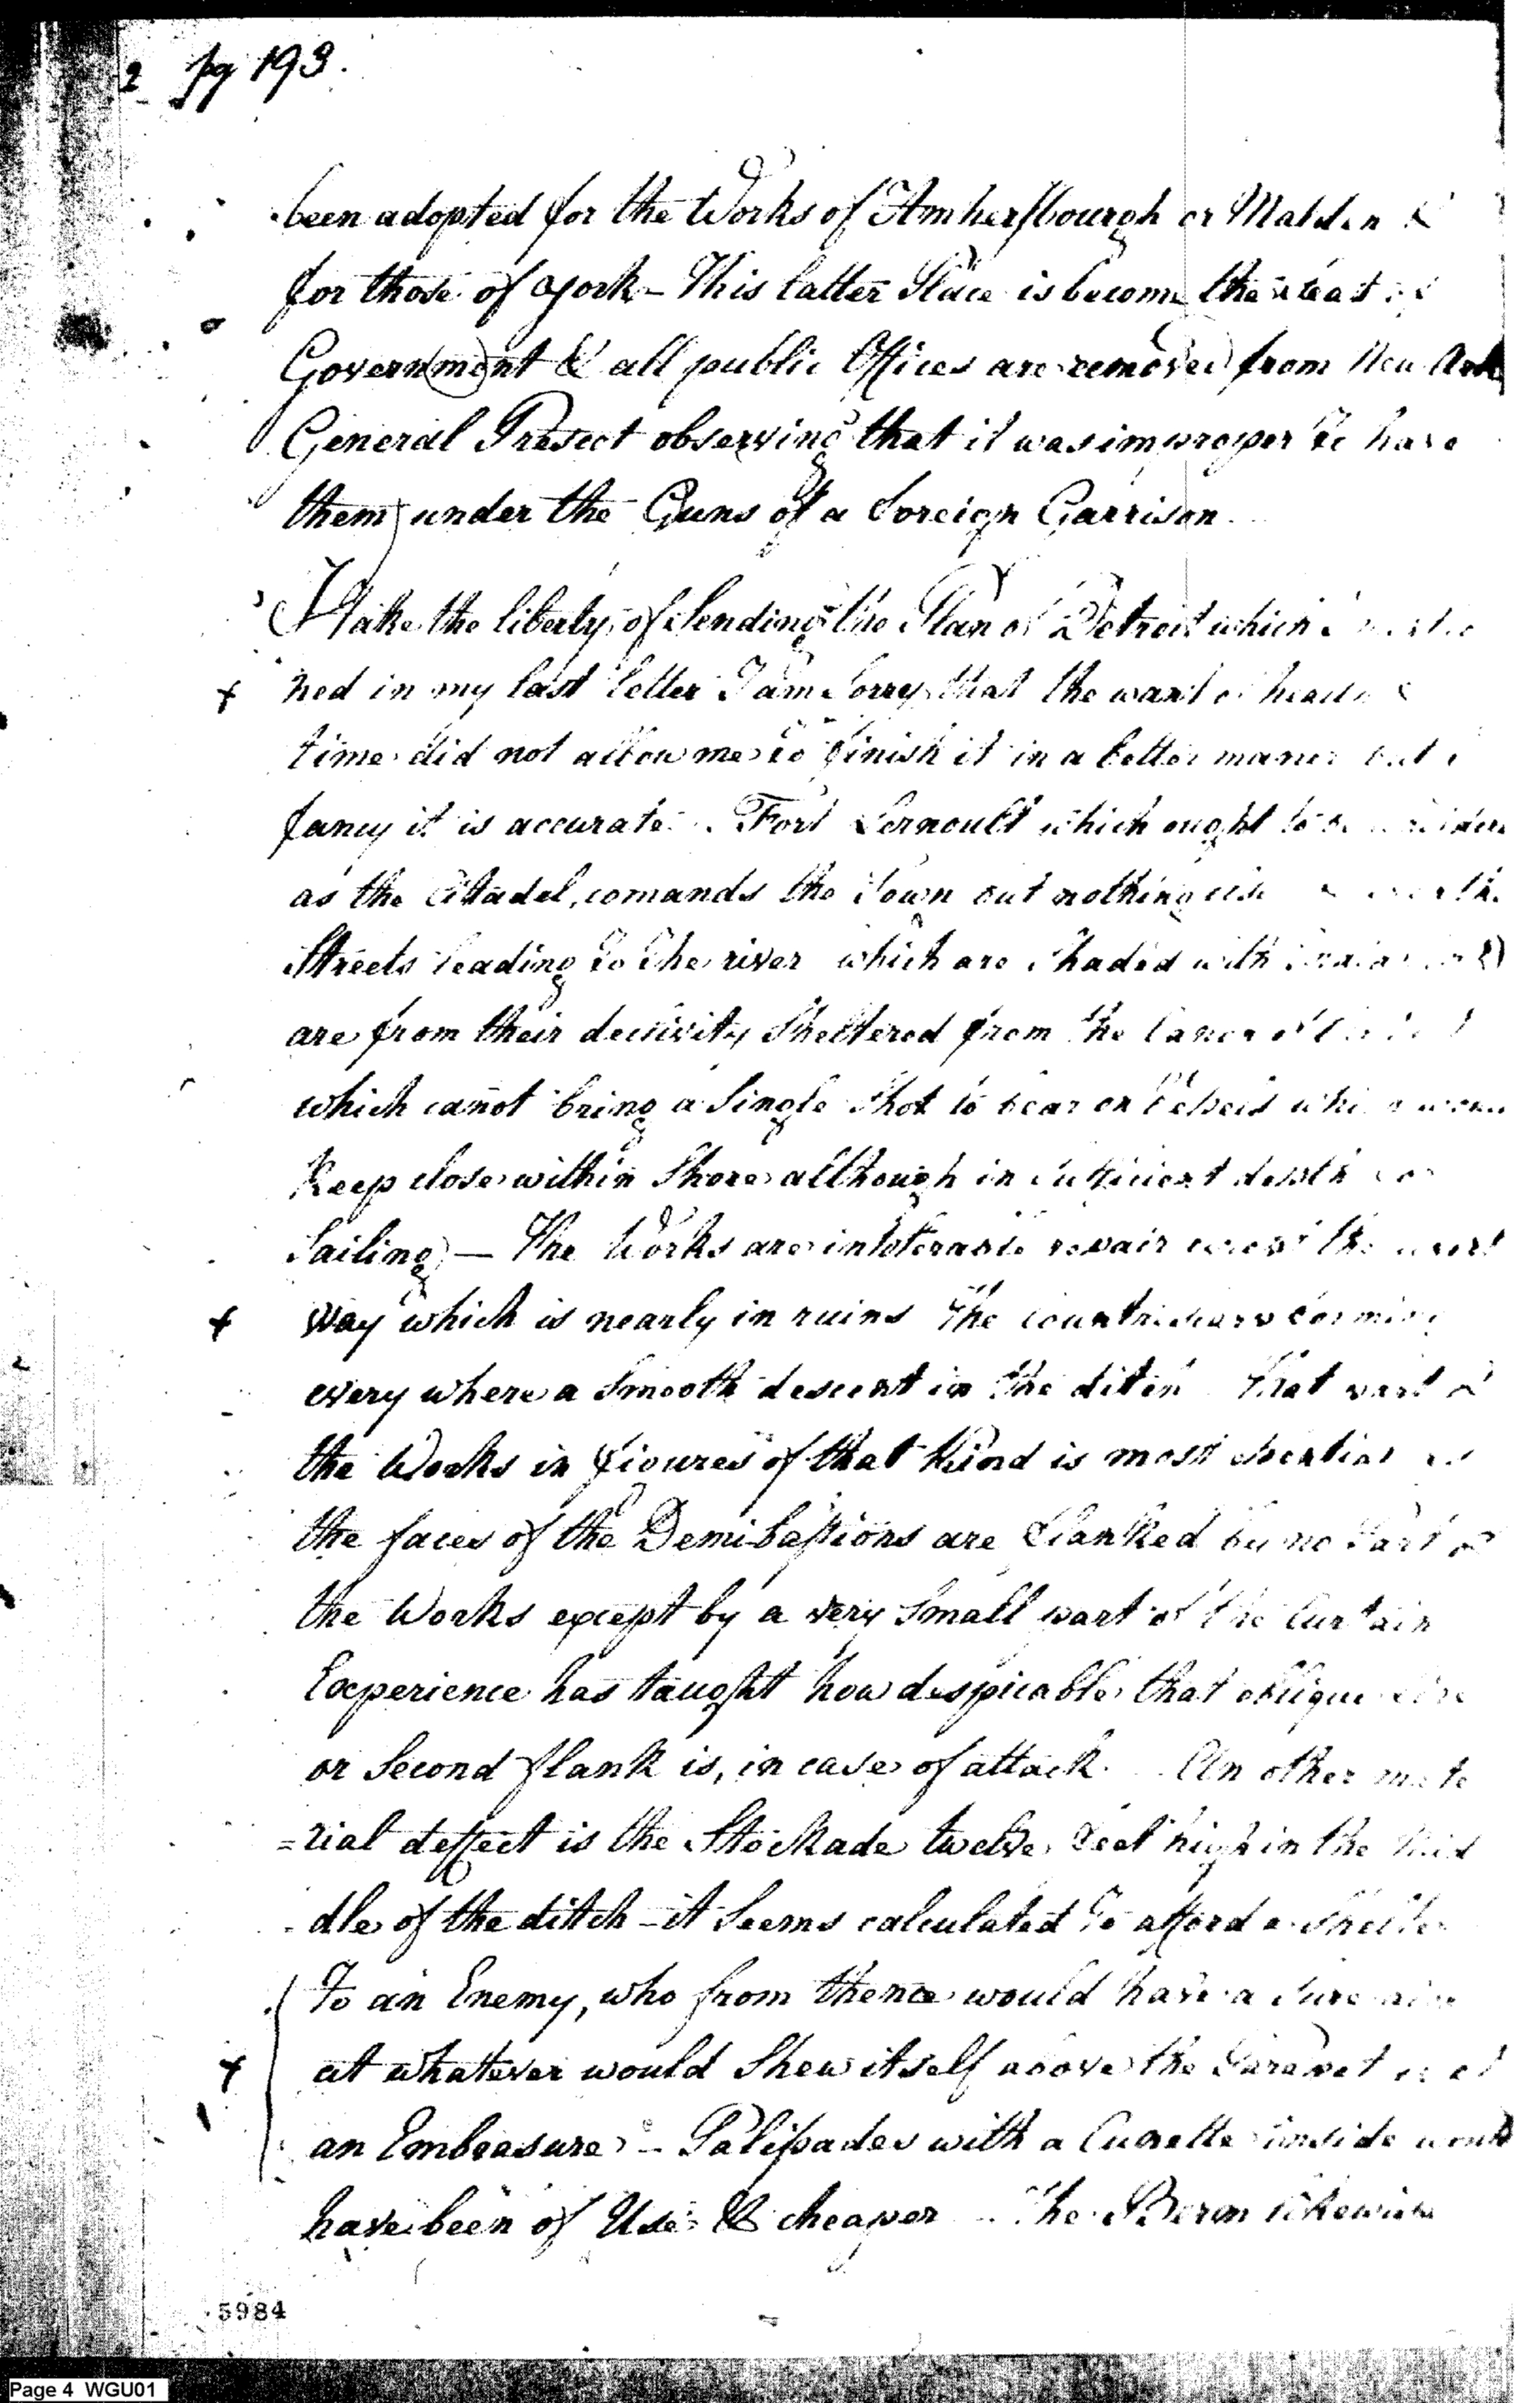 2 pg 193.
been adopted for the Works of Amhersbourgh or Malden &
for those of York – This latter Place is become the Seat of
Government & all public Offices are removed from New Ark
General Prescot observing that it was improper to have
them under the Guns of a foreign Garrison.
I take the liberty of Sending the Plan of Detroit which
ned in my last letter I am Sorry that the want of health &
time did not allow me to finish it in a better maner but I
fancy it is accurate. Fort Lernoult which ought to be
as the Citadel, comands the Town but nothing else
Streets leading to the river which are Shaded with
are from their declivity Sheltered from the
which cannot bring a Single Shot to bear on Vessels
Keep close within Shore allthough in Sufficient depth for
Sailing – The Works are in tolerable repair except the
Way which is nearly in ruins The
every where a Smooth descent in the ditch That part of
the Works in figures of that Kind is most essential as
the faces of the Demi bastions are flanked by no part of
the Works except by a very Small part of the Curtain
Experience has taught how despicable that oblique fire
or Second flank is, in case of attack. An other mate
=rial deffect is the Stockade twelve feet high in the Mid
dle of the ditch – it Seems calculated to afford a Shelter
To an Enemy, who from thence would have a Sure aim
at whatever would Shew itself above the Parapet or at
an Embrasure – Palisades with a Cunette inside would
have been of Use & cheaper – The Berm likewise
5984
Page 4 WGU01